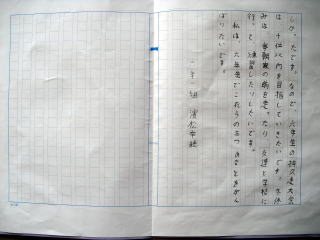 しか、たです。なので、六年生の持久走大会
は、十位以内を目指していきたいです。冬休
みは、毎朝家の前を走ったり、友達と学校に
行って練習したりしたいです。
私は、六年生でこれらの三つのことをがん
ばりたいです。
一年一組